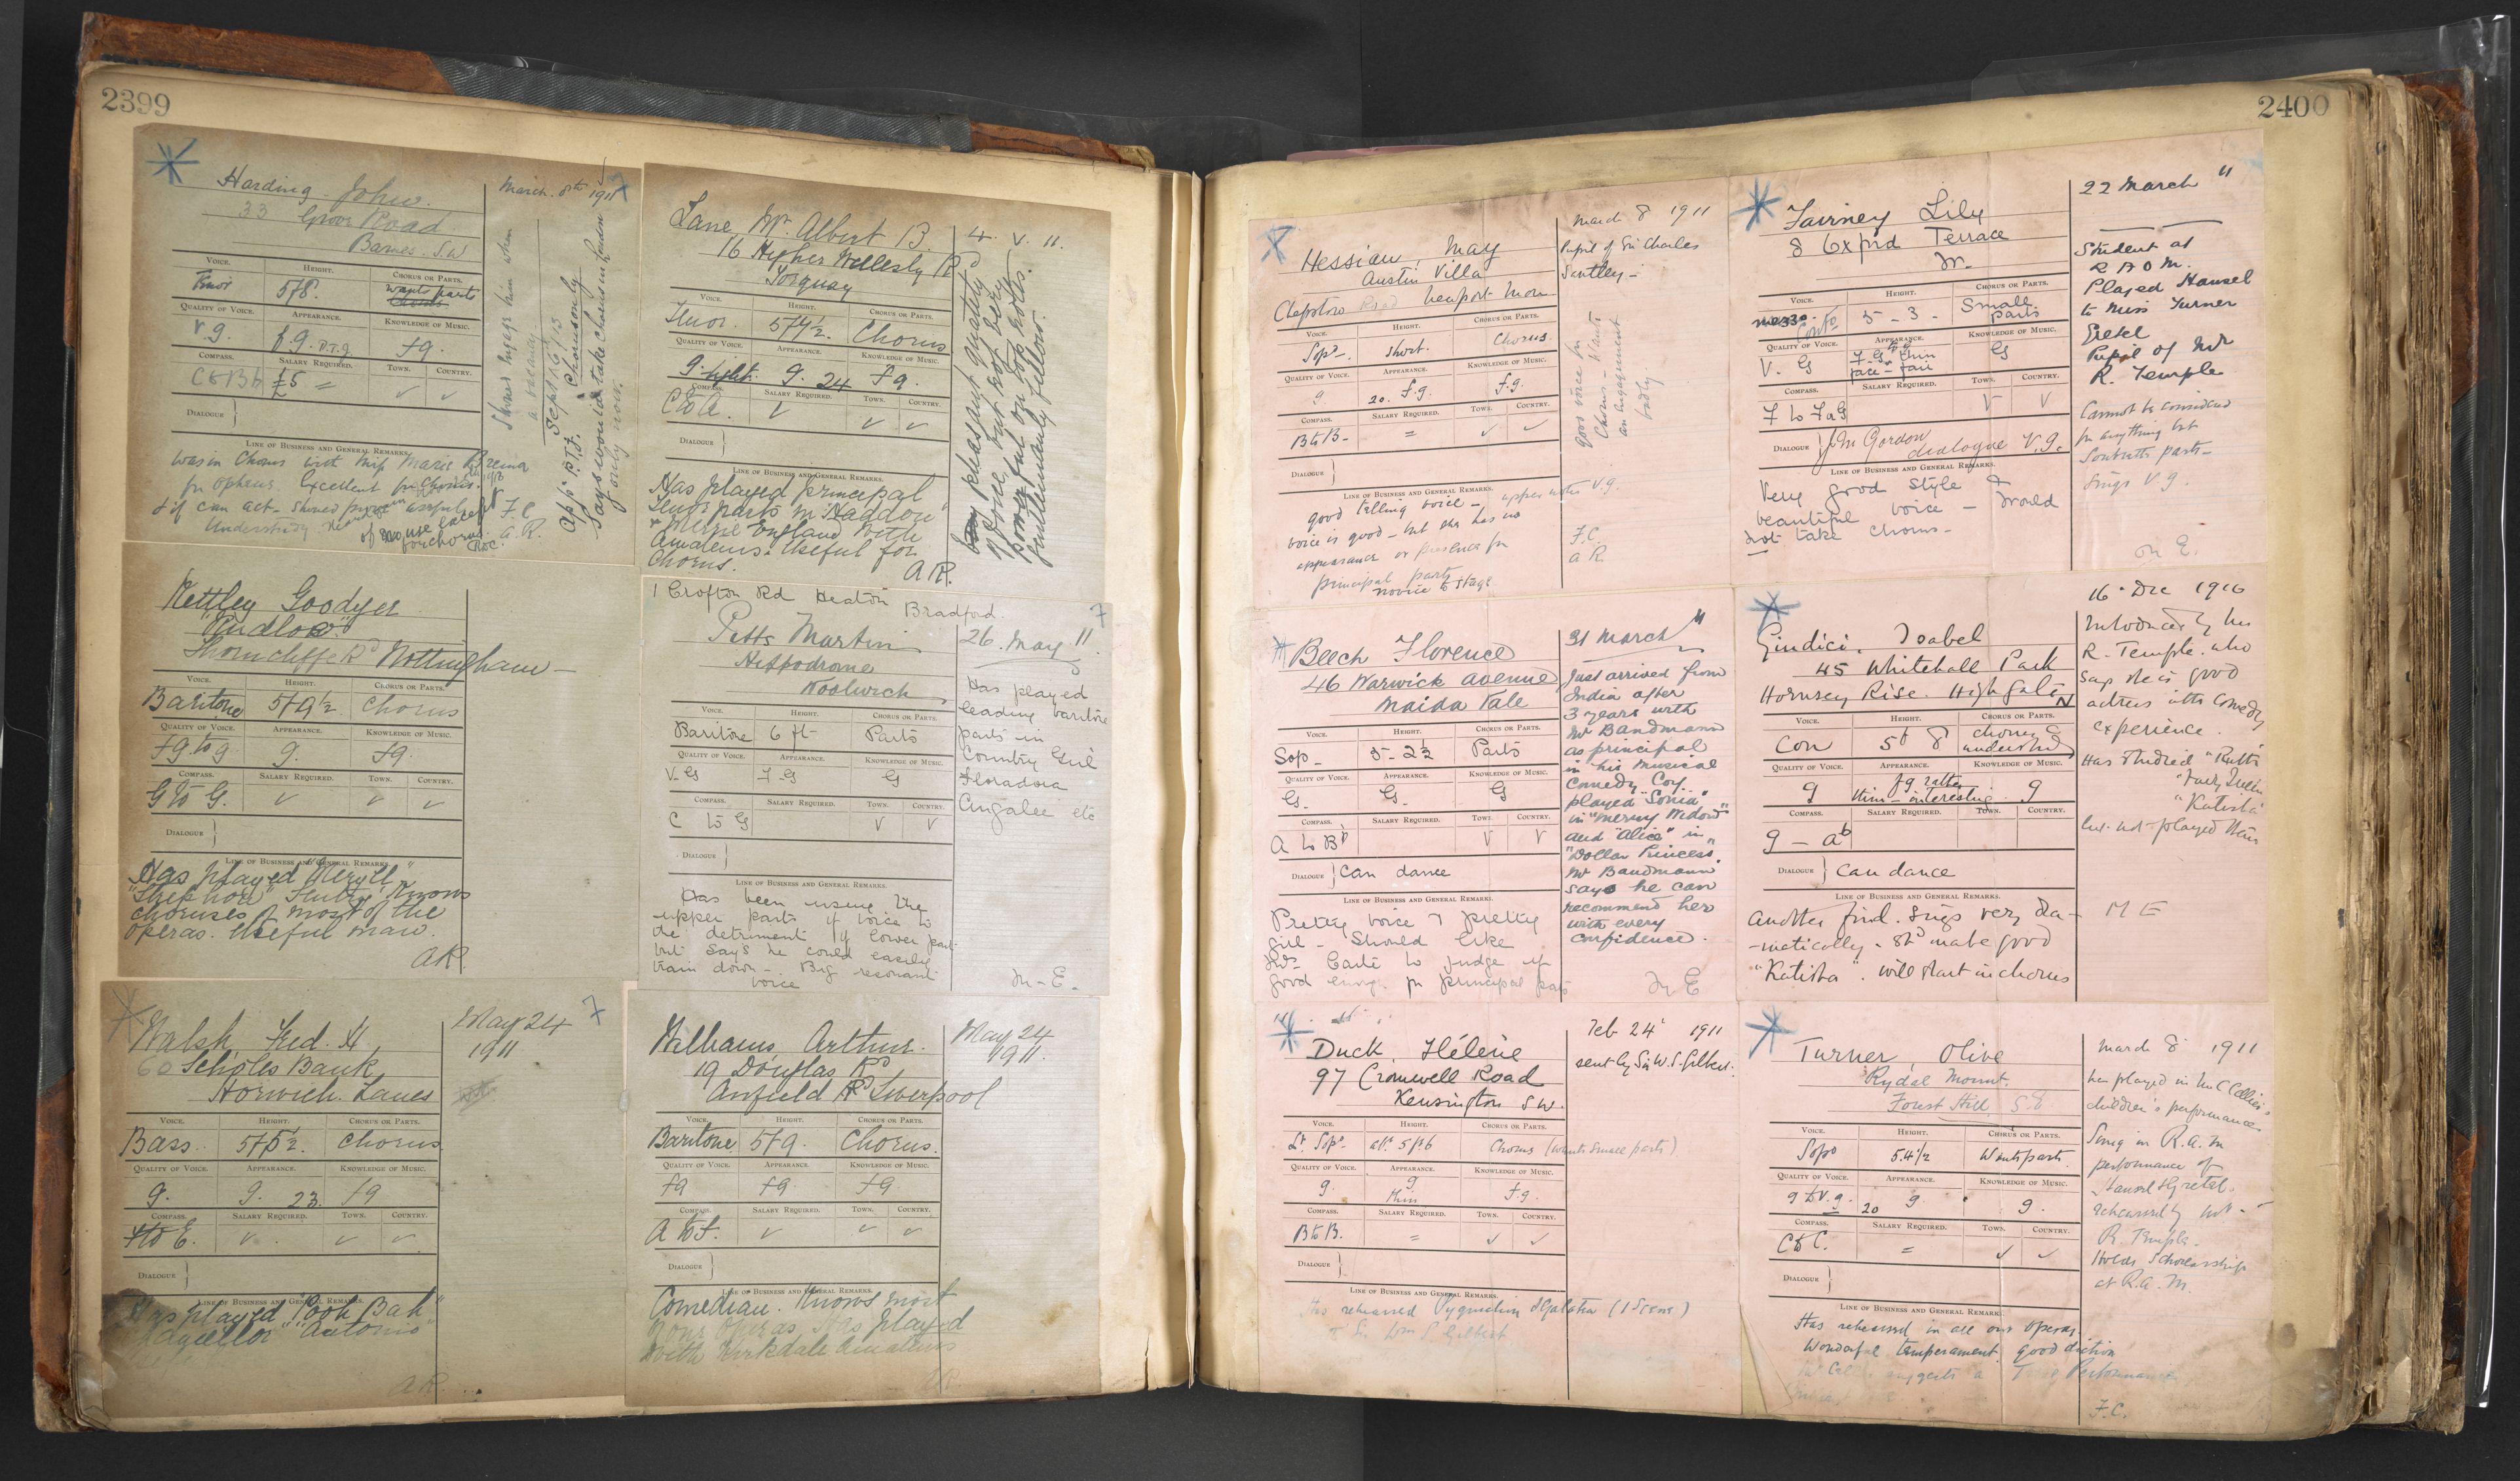 2399
Harding John
33 Grove Road
Barnes. S.W
March. 8th 1911
VOICE. HEIGHT. CHORUS OR PARTS.
Tenor 5f8. wants parts
Chorus
QUALITY OF VOICE. APPEARANCE. KNOWLEDGE OF MUSIC.
v g. f.g. P.T.g. fg.
COMPASS. SALARY REQUIRED. TOWN. COUNTRY.
C to Bb £5 = ✓ ✓
DIALOGUE
LINE OF BUSINESS AND GENERAL REMARKS.
was in Chorus with Miss Marie Brema
for Orpheus. Excellent for Chorus.
& if can act - should prove a useful
Understudy
of no use except
for chorus.
F C
A. R.
Should engage him when
a vacancy.
Sept 16/13
App: P.T.J. Chorus only
Says would take chorus in London
only now.
Lane Mr. Albert B.
16 Higher Wellesley Rd
Torquay
4. V. 11.
VOICE. HEIGHT. CHORUS OR PARTS.
Tenor. 5f4½. Chorus
QUALITY OF VOICE. APPEARANCE. KNOWLEDGE OF MUSIC.
g. light. g. 24 fg.
COMPASS. SALARY REQUIRED. TOWN. COUNTRY.
C to A. ✓ ✓ ✓
DIALOGUE
LINE OF BUSINESS AND GENERAL REMARKS.
Has played principal
tenor parts in "Haddon"
& "Merrie England" with
Amateurs. Useful for
Chorus.
A R.
pleasant quality
of tone, but not very
powerful on top notes.
gentlemanly fellow.
Kettley Goodyer
"Ludlow"
Thorncliffe Rd Nottingham
VOICE. HEIGHT. CHORUS OR PARTS.
Baritone 5f9½. Chorus
QUALITY OF VOICE. APPEARANCE. KNOWLEDGE OF MUSIC.
fg. to g. g. fg.
COMPASS. SALARY REQUIRED. TOWN. COUNTRY.
G to G. ✓ ✓ ✓
DIALOGUE
LINE OF BUSINESS AND GENERAL REMARKS.
Has played "Meryll"
"Strephon" Knows
choruses of most of the
operas. Useful man.
AR.
1 Crofton Rd Heaton Bradford
Petts Martin
Hippodrome
Woolwich
26. May 11.
VOICE. HEIGHT. CHORUS OR PARTS.
Baritone 6 ft Parts
QUALITY OF VOICE. APPEARANCE. KNOWLEDGE OF MUSIC.
V-G F-G G
COMPASS. SALARY REQUIRED. TOWN. COUNTRY.
C to G V V
DIALOGUE
LINE OF BUSINESS AND GENERAL REMARKS.
Has been using the
upper part of voice to
the detriment of lower part
but says he could easily
train down -. Big resonant
voice
Has played
leading baritone
parts in
Country Girl
Floradora
Cingalee etc
M-E.
Walsh Fred. H
60 Scholes Bank
Horwich. Lancs
May 24
1911
VOICE. HEIGHT. CHORUS OR PARTS.
Bass. 5f5½. Chorus
QUALITY OF VOICE. APPEARANCE. KNOWLEDGE OF MUSIC.
g. g. 23. fg
COMPASS. SALARY REQUIRED. TOWN. COUNTRY.
F to E. ✓ ✓ ✓
DIALOGUE
LINE OF BUSINESS AND GENERAL REMARKS.
Has played "Pooh Bah"
"Antonio"
AR
Williams Arthur.
19 Douglas Rd
Anfield Rd Liverpool
May 24
1911.
VOICE. HEIGHT. CHORUS OR PARTS.
Baritone 5f9. Chorus.
QUALITY OF VOICE. APPEARANCE. KNOWLEDGE OF MUSIC.
fg fg. fg.
COMPASS. SALARY REQUIRED. TOWN. COUNTRY.
A to F. ✓ ✓ ✓
DIALOGUE
LINE OF BUSINESS AND GENERAL REMARKS.
Comedian. Knows most
of our operas. Has played
with Kirkdale Amateurs
AR
2400
Hessian, May
Austin Villa
Chepstow Road Newport Mon
March 8 1911
Pupil of Sir Charles
Santley -
VOICE. HEIGHT. CHORUS OR PARTS.
Sopo -. Short. Chorus
QUALITY OF VOICE. APPEARANCE. KNOWLEDGE OF MUSIC.
g. 20. f.g. f.g.
COMPASS. SALARY REQUIRED. TOWN. COUNTRY.
B to B - = ✓ ✓
DIALOGUE
LINE OF BUSINESS AND GENERAL REMARKS.
good telling voice - upper notes v.g.
voice is good - but she has no
appearance or presence for
principal parts
novice to stage
good voice for
Chorus - Wants
an engagement
badly.
F.C.
A R.
Fairney Lily
8 Oxford Terrace
W.
22 March 11
VOICE. HEIGHT. CHORUS OR PARTS.
mezzo. Conto 5 - 3 - Small parts
QUALITY OF VOICE. APPEARANCE. KNOWLEDGE OF MUSIC.
V. G F G thin face - fair G
COMPASS. SALARY REQUIRED. TOWN. COUNTRY.
F to G V V
DIALOGUE JM Gordon
dialogue V.g.
LINE OF BUSINESS AND GENERAL REMARKS.
Very good style &
beautiful voice - would
not take chorus -
Student at
R A O M.
Played Hansel
to Miss Turner
Gretel
Pupil of Mr
R. Temple
Cannot be considered
for anything but
Soubrette parts -
Sings v.g.
M E.
Beech Florence
46 Warwick Avenue
Maida Vale
31 March 11
VOICE. HEIGHT. CHORUS OR PARTS.
Sop - 5 - 2½ Parts
QUALITY OF VOICE. APPEARANCE. KNOWLEDGE OF MUSIC.
G. G - G
COMPASS. SALARY REQUIRED. TOWN. COUNTRY.
A to Bb V V
DIALOGUE can dance
LINE OF BUSINESS AND GENERAL REMARKS.
Pretty voice & pretty
girl - Should like
Mrs Carte to judge if
good enough for principal parts
Just arrived from
India after
3 years with
Mr Bandmann
as principal
in his Musical
Comedy Coy.
played "Sonia"
in "Merry Widow"
and "Alice" in
"Dollar Princess".
Mr Bandmann
says he can
recommend her
with every
confidence.
M E
Giudici, Isabel
45 Whitehall Park
Hornsey Rise. Highgate N
16. Dec 1910
VOICE. HEIGHT. CHORUS OR PARTS.
Con 5f 8 chorus & understudy
QUALITY OF VOICE. APPEARANCE. KNOWLEDGE OF MUSIC.
g fg rather thin - interesting g
COMPASS. SALARY REQUIRED. TOWN. COUNTRY.
g - ab
DIALOGUE can dance
LINE OF BUSINESS AND GENERAL REMARKS.
another find. Sings very dra-
-matically. Shd make good
"Katisha". will start in chorus
Introduced by her
R. Temple. who
says she is good
actress with Comedy
experience.
Has studied "Ruth"
"Fairy Queen"
"Katisha"
but not played them
M E
Duck, Hélène
97 Cromwell Road
Kensington S W.
Feb 24 1911
sent by Sir W. S. Gilbert.
VOICE. HEIGHT. CHORUS OR PARTS.
Lt. Sopo. abt. 5ft6 Chorus (wants small parts)
QUALITY OF VOICE. APPEARANCE. KNOWLEDGE OF MUSIC.
g. g thin f.g.
COMPASS. SALARY REQUIRED. TOWN. COUNTRY.
B to B. = ✓ ✓
DIALOGUE
LINE OF BUSINESS AND GENERAL REMARKS.
Has rehearsed Pygmalion & Galatea (1 Scene)
Gilbert
Turner, Olive
Rydal Mount.
Forest Hill, S.E
March 8 1911
VOICE. HEIGHT. CHORUS OR PARTS.
Sopo 5.4½ Wants parts.
QUALITY OF VOICE. APPEARANCE. KNOWLEDGE OF MUSIC.
g to v.g. 20 g. g.
COMPASS. SALARY REQUIRED. TOWN. COUNTRY.
C to C. = ✓ ✓
DIALOGUE
LINE OF BUSINESS AND GENERAL REMARKS.
Has rehearsed in all our operas.
Wonderful temperament, good diction
suggests a Performance
has played in
children's performances
Sung in R.a.m
performance of
Hansel & Gretel.
R. Temple.
Holds Scholarship
at R.a.m
F.C.